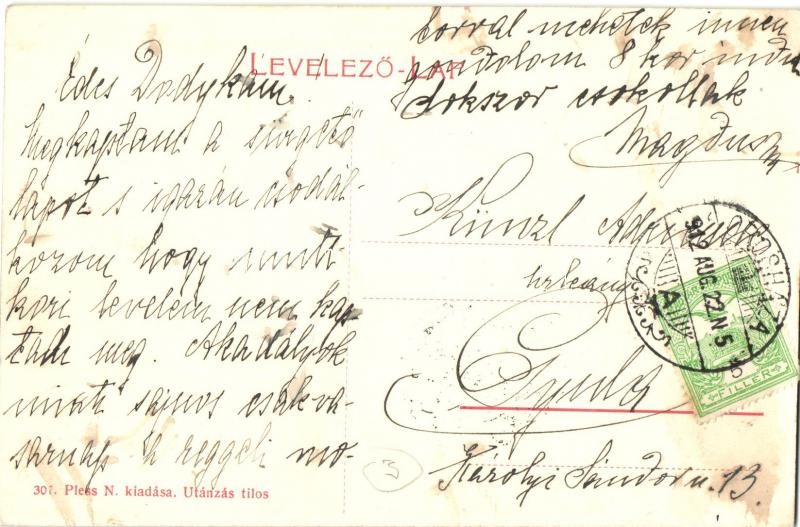 LEVELEZŐ-LAP
Édes Dodykám
Megkaptam a sürgető
lapot s igazán csodál-
kozom hogy multi-
kori levelem nem kap-
tad meg. Akadályok
miatt sajnos csak va-
sarnap a reggeli vo-
torral mehetek innen
gondolom 8 kor indu
Sokszor csokollak
Magdus
Künzl
urleány
Gyula
Károlyi Sándor u. 13.
912 AUG 22 N 5
A
FILLER
3
307. Pless N. kiadása. Utánzás tilos